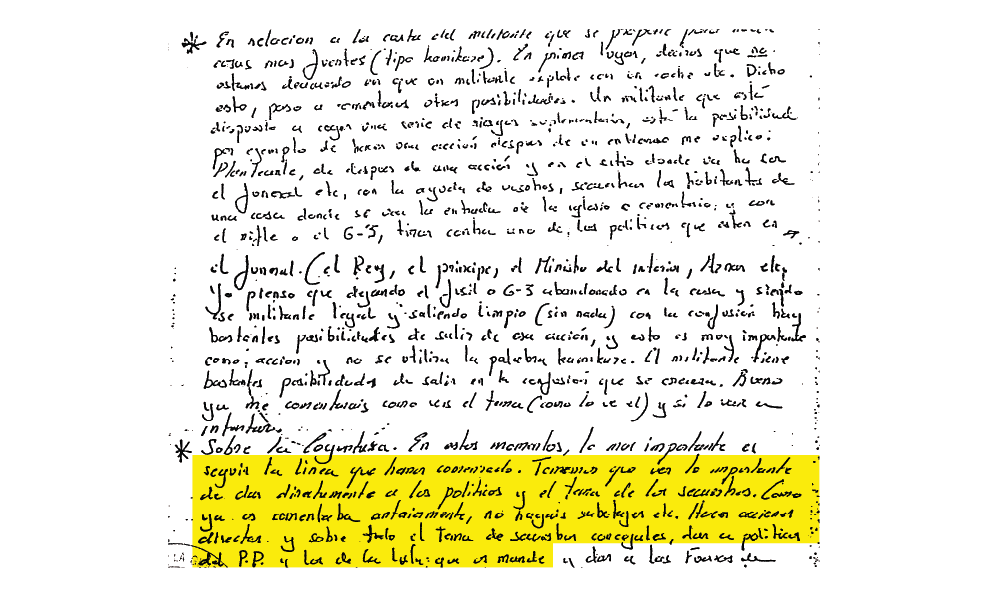 * En relacion a la carta del militante que se propone para hacer
cosas mas fuertes (tipo kamikaze). En primer lugar, deciros que no
estamos deacuerdo en que un militante explote con un coche etc. Dicho
esto, paso a comentaros otras posibilidades. Un militante que está
dispuesto a coger una serie de riesgos suplementarios, está la posibilidad
por ejemplo de hacer una acción despues de un entierro me explico:
Plantearle, de despues de una acción y en el sitio donde va ha ser
el funeral etc, con la ayuda de vosotros, secuestrar los habitantes de
una casa donde se vea la entrada de la iglesia o cementerio; y con
el rifle o el G-3, tirar contra uno de los politicos que esten en
el funeral. (el Rey, el principe, el Ministro del interior, Aznar etc,
Yo pienso que dejando el fusil o G-3 abandonado en la casa y siendo
ese militante legal y saliendo limpio (sin nada) con la confusión hay
bastantes posibilidades de salir de esa acción, y esto es muy importante
como acción y no se utiliza la palabra kamikaze. El militante tiene
bastantes posibilidades de salir en la confusión que se creara. Bueno
ya me comentarais como veis el tema (como lo ve el) y si lo veis a
intentar.
* Sobre la Coyuntura. En estos momentos, lo mas importante es
seguir la linea que habeis comenzado. Tenemos que ver lo importante
de dar directamente a los politicos y el tema de los secuestros. Como
ya os comentaba anteriormente, no hagais sabotajes etc. Hacer acciones
directas y sobre todo el tema de secuestrar concejales, dar a politicos
del P.P. y los de la lista que os mande y dar a las Fuerzas de
LA